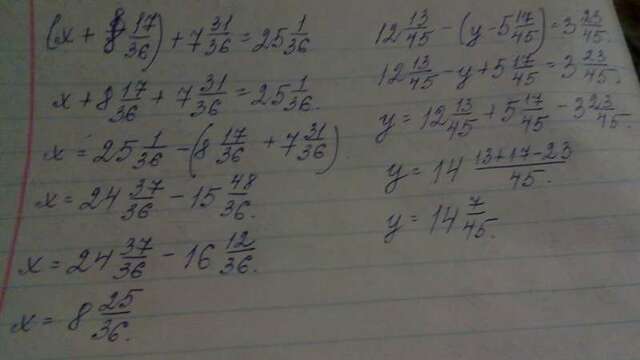 (x + 8 17/36) + 7 31/36 = 25 1/36
x + 8 17/36 + 7 31/36 = 25 1/36.
x = 25 1/36 - (8 17/36 + 7 31/36).
x = 24 37/36 - 15 48/36.
x = 24 37/36 - 16 12/36.
x = 8 25/36.
12 13/45 - (y - 5 17/45) = 3 23/45.
12 13/45 - y + 5 17/45 = 3 23/45.
y = 12 13/45 + 5 17/45 - 3 23/45.
y = 14 13+17-23/45.
y = 14 7/45.